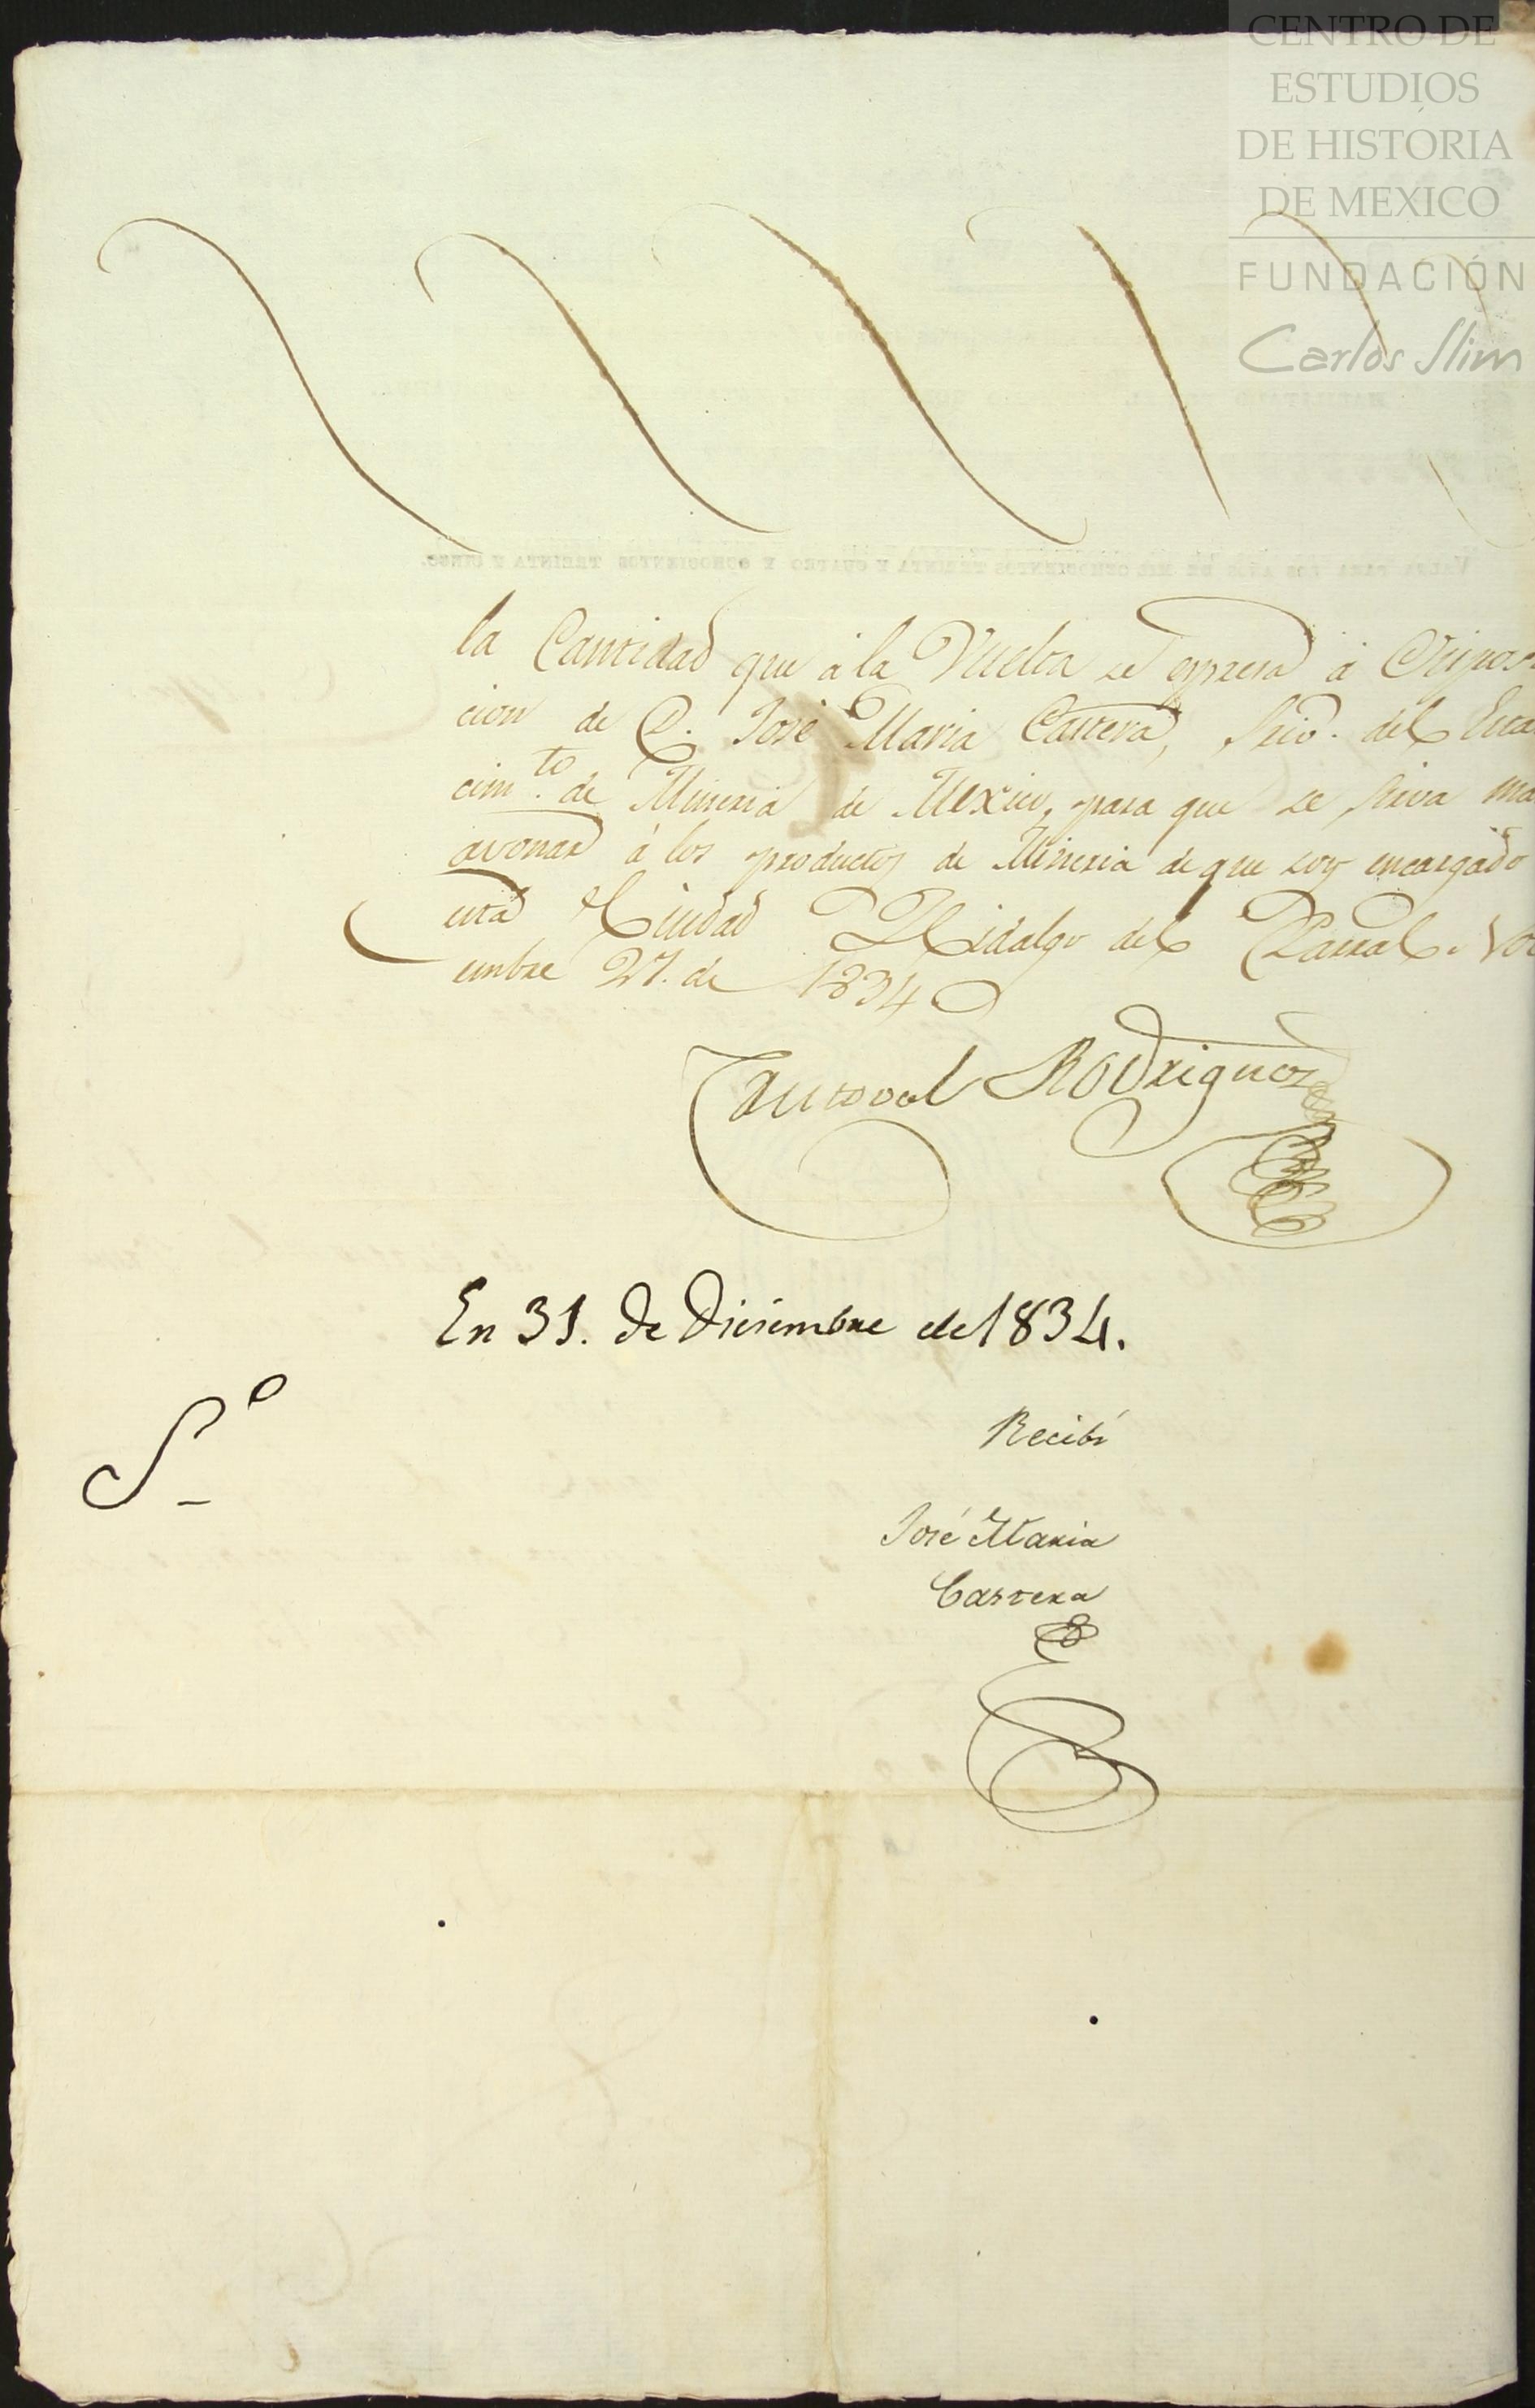 CENTRO DE
ESTUDIOS
DE HISTORIA
DE MEXICO
FUNDACIÓN
Carlos Slim
la Cantidad que á la Vuelta se espresa á Dispos
cion de D. José Maria Castera, Srio. del
cim.to de Mineria de Mexico, para que se sirva ma
avonar á los productos de Mineria de que soy encargado
esta Ciudad Hidalgo del Parral.
embre 27. de 1834
Rodriguez
En 31. de Diciembre de 1834.
Recibí
José Maria
Castera